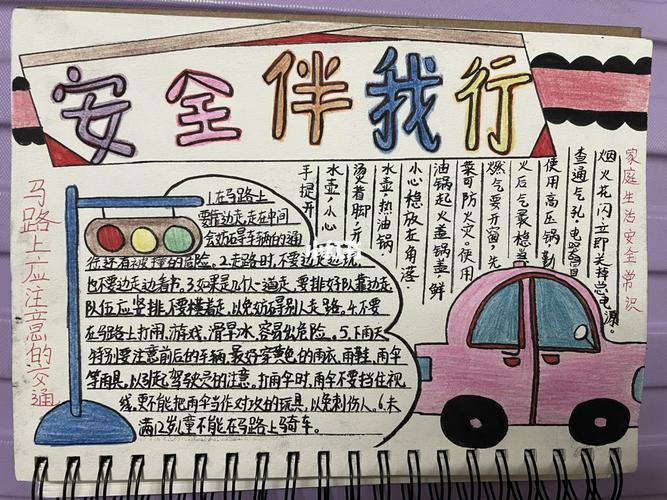 安全伴我行
马路上应注意的交通
1.在马路上
要靠边走,走在中间
会妨碍车辆的通
行还有被撞的危险。2.走路时,不要边走边
也不要边走边看书。3.如果是几个人一道走,要排好队靠边走,
队伍应竖排,不要横着走,以免妨碍别人走路。4.不要
在马路上打闹,游戏,滑旱冰,容易出危险。5.下雨天
特别要注意前后的车辆,最好穿黄色的雨衣,雨鞋,雨伞
等雨具,以引起驾驶员的注意。打雨伞时,雨伞不要挡住视
线。更不能把雨伞当作对攻的玩具,以免刺伤人。6.未
满12岁儿童不能在马路上骑车。
家庭生活安全常识
烟火花闪,立即关掉总电源。
查通气孔,电器冒
使用高压锅勤
火后气要稳当
燃气要开窗,先
菜可防火灾。使用
油锅起火盖锅盖,鲜
小心稳放在角落,
水壶,热油锅,
烫着脚,开
水壶,小心
手提开